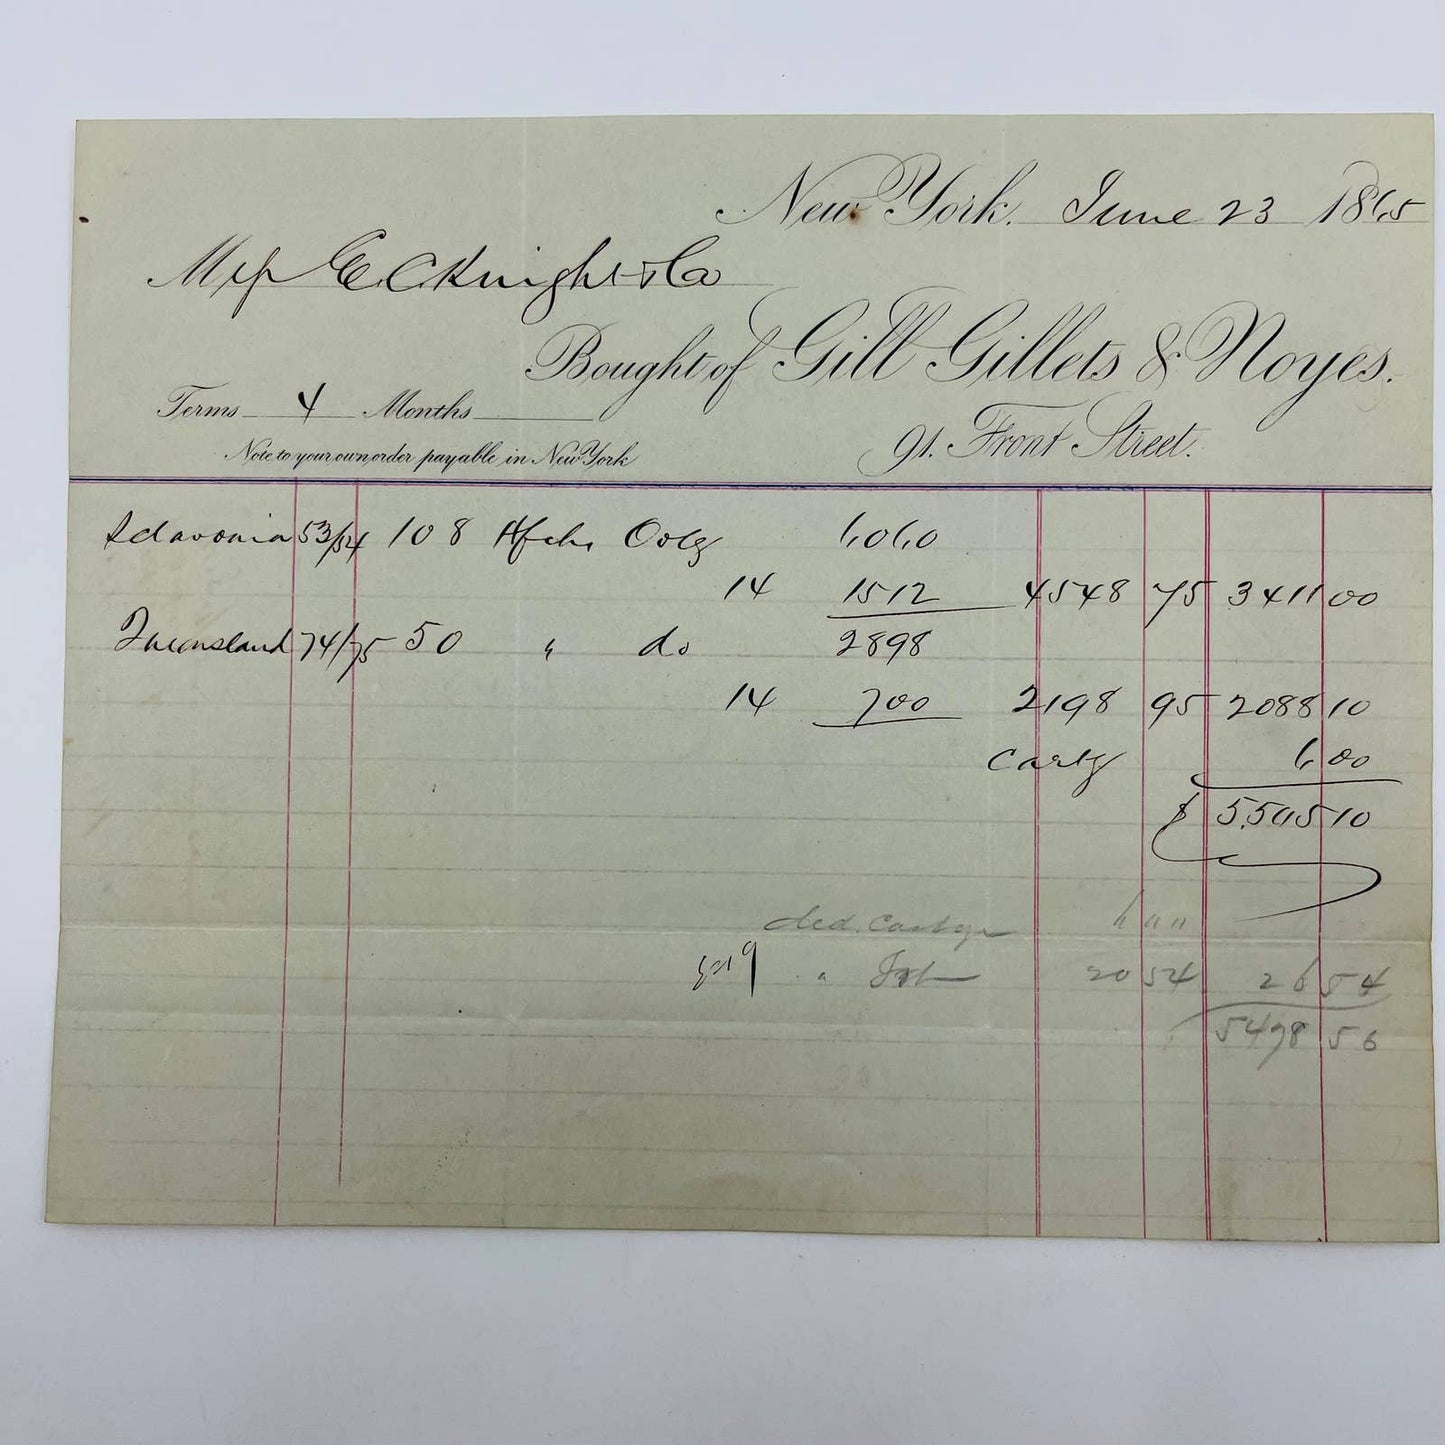 New York. June 23 1865
Mess E C Knight & Co
Bought of Gill Gillets & Noyes.
Terms 4 Months
91. Front Street.
Note to your own order payable in New York
Sclavonia 53/54 108 Hfchs Oolg 6060
14 1512 4548 75 3411 00
Queensland 74/75 50 " do 2898
14 700 2198 95 2088 10
Cartg 6 00
$ 5,505 10
ded. Cartge 6 00
" 20 54 26 54
5478 56